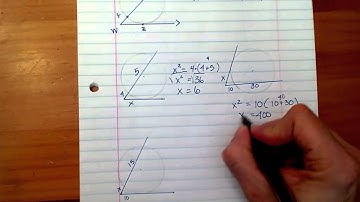 W
2
5
4
x
x² = 4·(4+5)
9
√x² = √36
x = 6
x
10
30
x² = 10(10+30)
40
x = 400
15
x
10